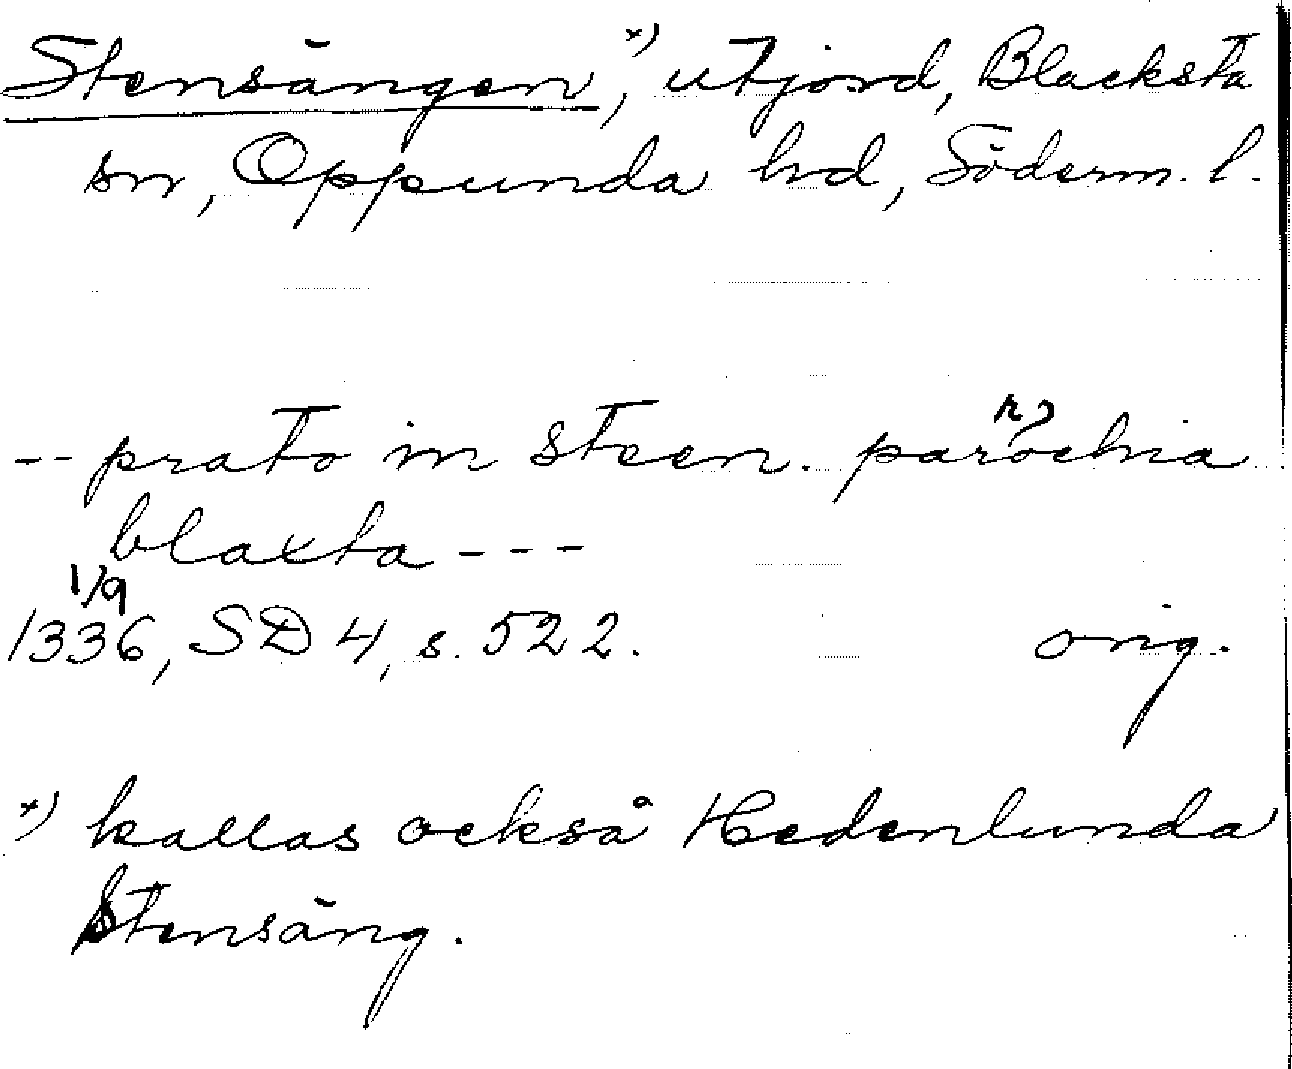 Stensängen x), utjord, Blacksta
sn, Oppunda hd, Söderm. l.
-- prato in steen. parrochia
blaxta ---
1/9
1336, SD 4, s. 522. orig.
x) kallas också Hedenlunda
Stensäng.